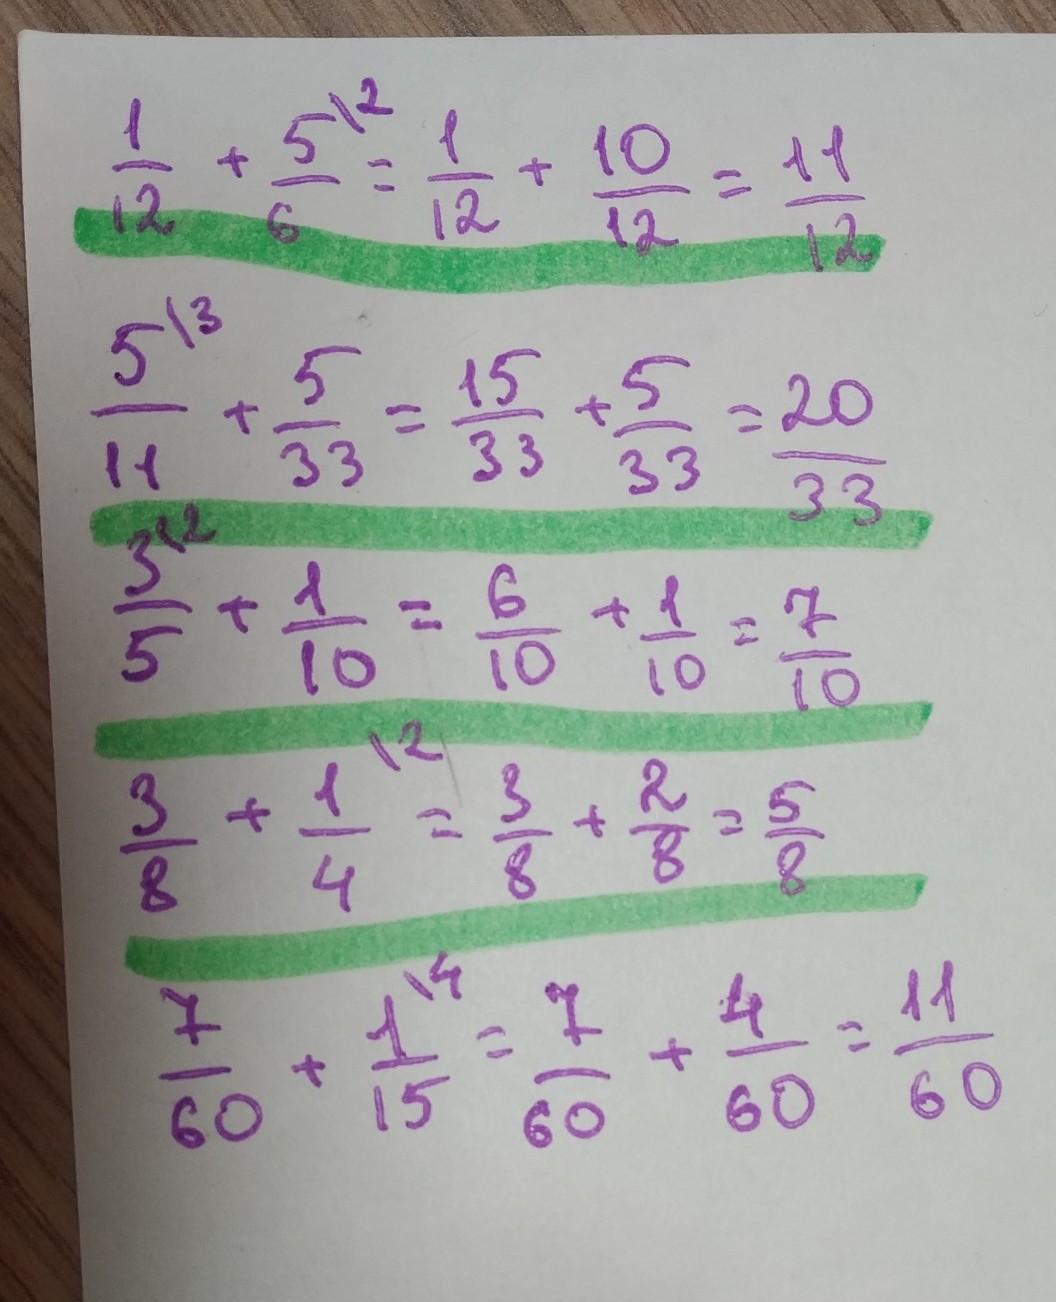 1/12 + 5\2/6 = 1/12 + 10/12 = 11/12
5\3/11 + 5/33 = 15/33 + 5/33 = 20/33
3\2/5 + 1/10 = 6/10 + 1/10 = 7/10
3/8 + 1\2/4 = 3/8 + 2/8 = 5/8
7/60 + 1\4/15 = 7/60 + 4/60 = 11/60